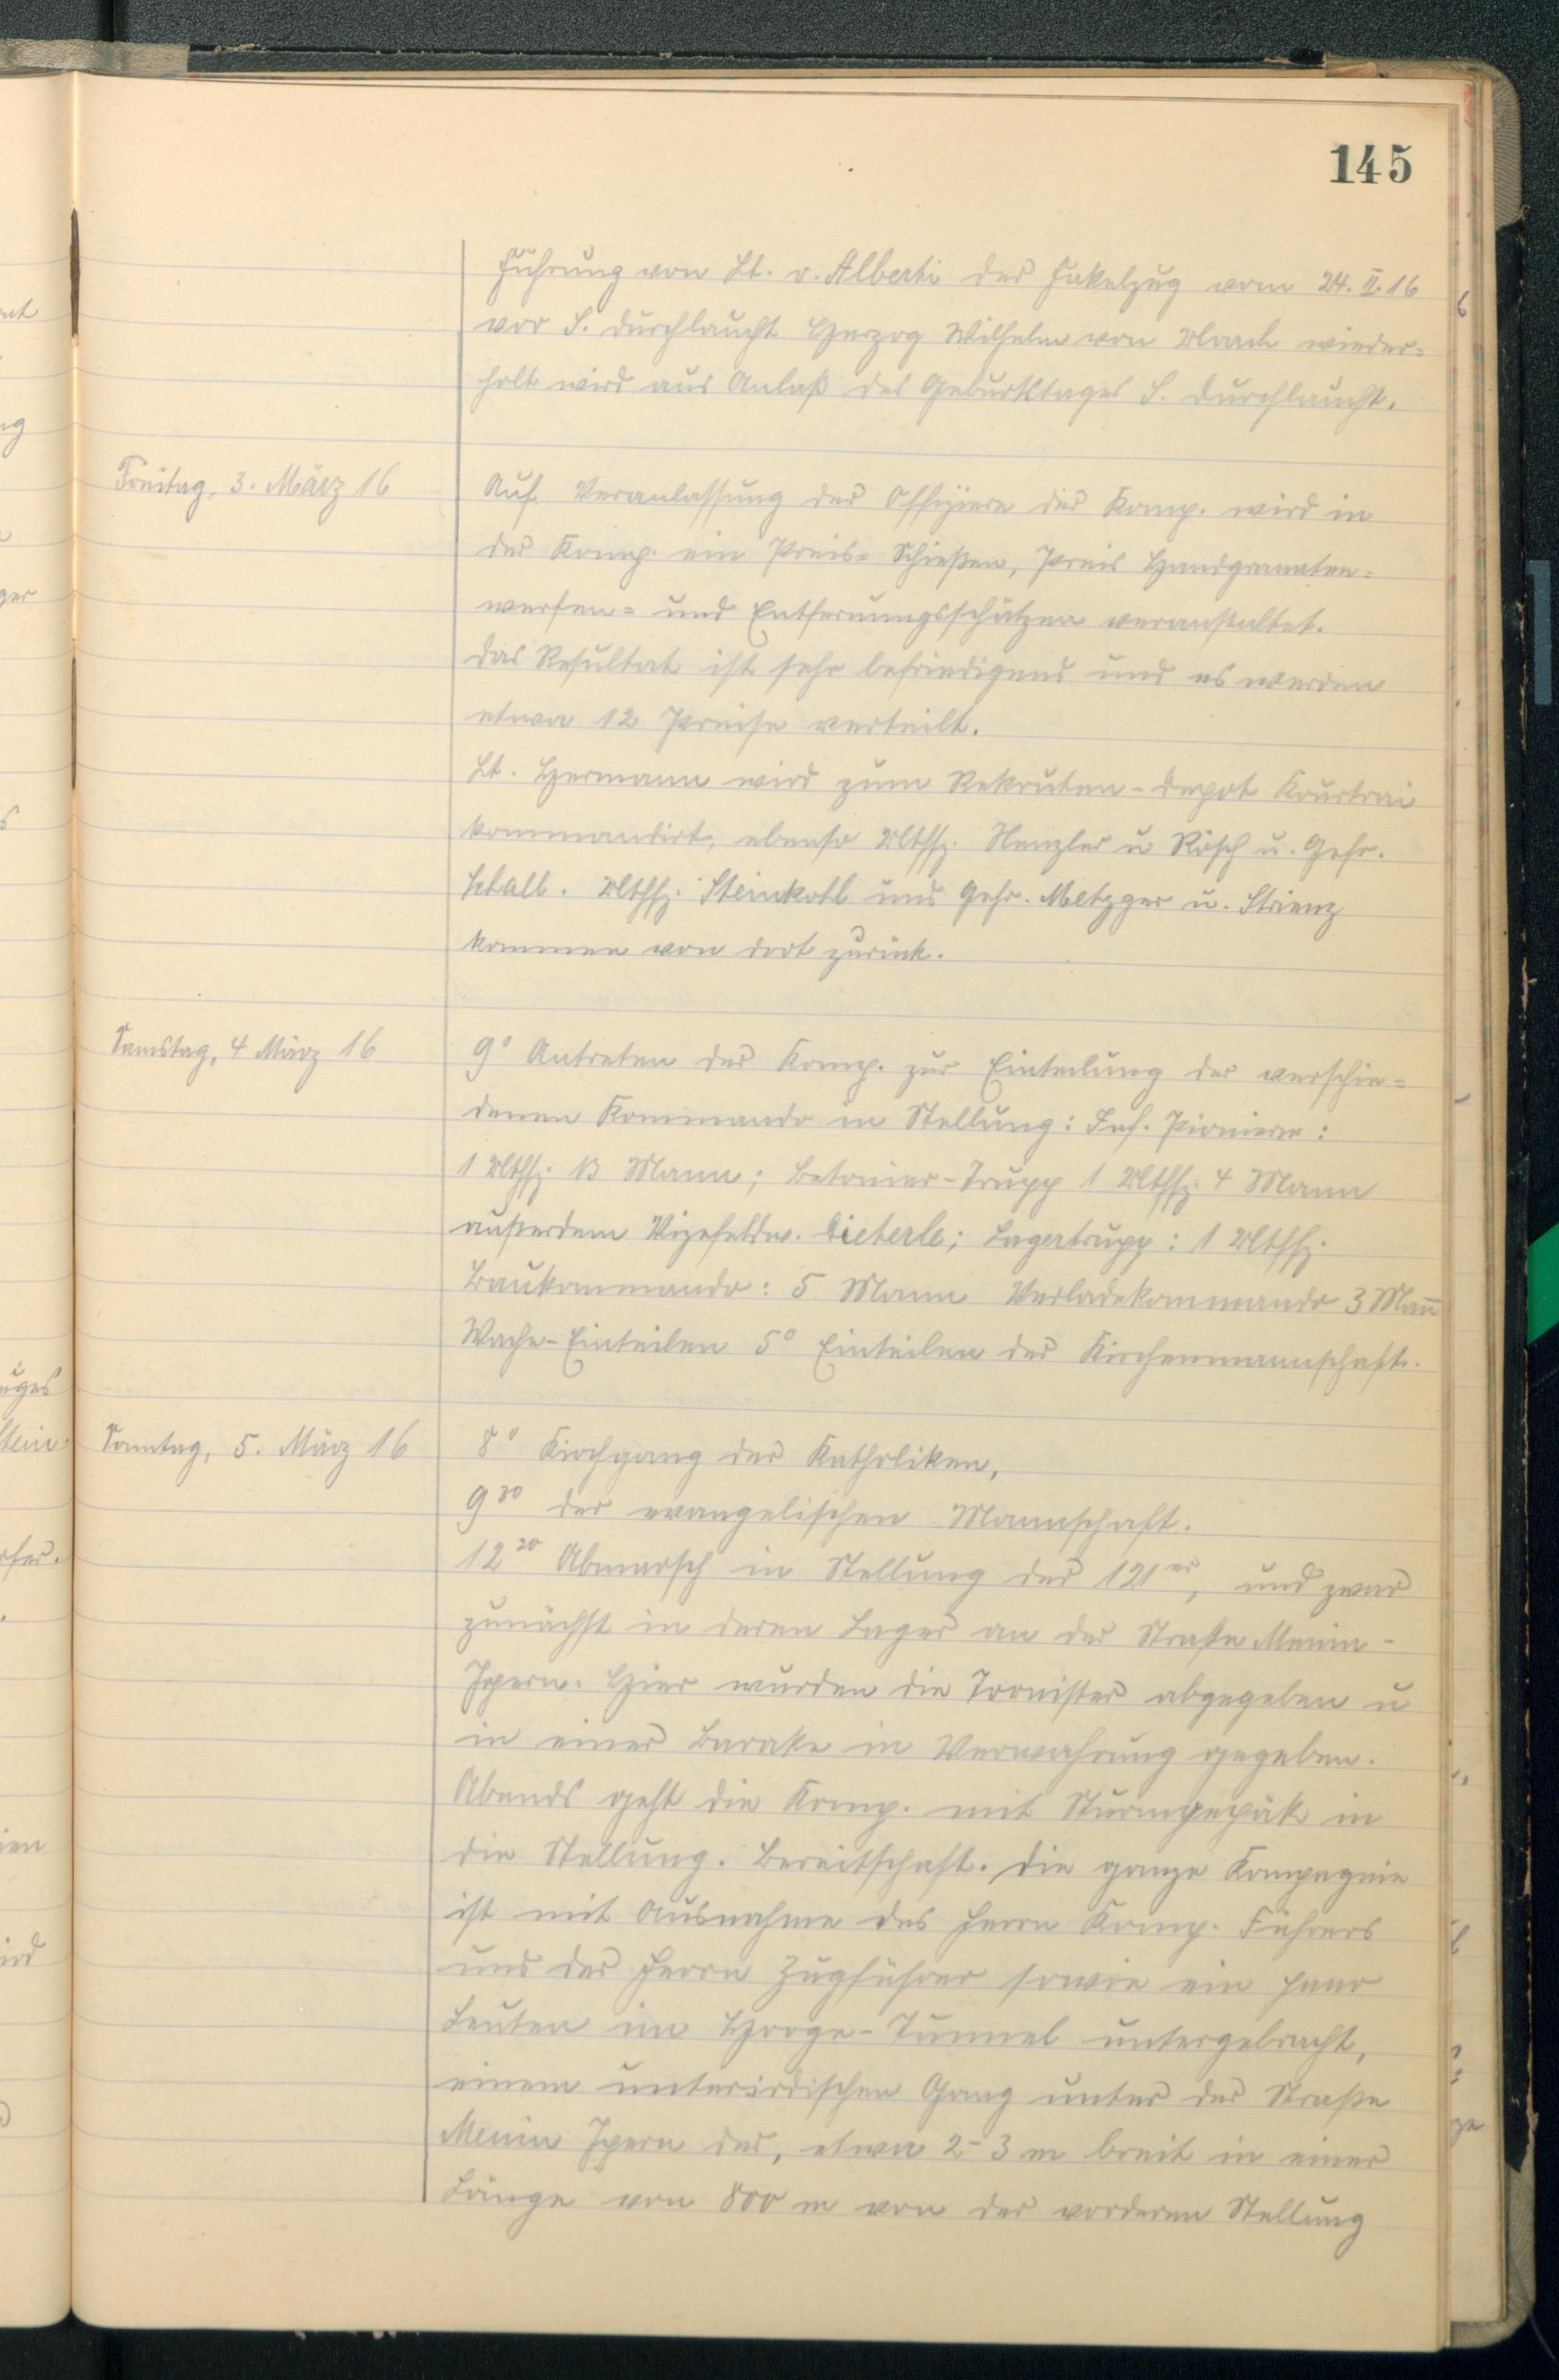 145
Führung von Lt. v. Alberti der Fakelzug vom 24. II. 16
vor S. Durchlaucht Herzog Wilhelm von Urach wieder=
holt wird aus Anlaß des Geburtstages S. Durchlaucht.
Freitag, 3. März 16
Auf Veranlassung der Offiziere der Komp. wird in
der Komp. ein Preis= Schießen, Preis Handgranaten=
werfen= und Entfernungsschätzen veranstaltet.
Das Resultat ist sehr befriedigend und es werden
etwa 12 Preise verteilt.
Lt. Hermann wird zum Rekruten-Depot Kourtrai
kommandirt, ebenso Utffz. Henzler u Rösch u. Gefr.
Schall. Utffz. Steinkohl und Gefr. Metzger u. Strenz
kommen von dort zurück.
Samstag, 4 März 16
9° Antreten der Komp. zur Einteilung der verschie=
denen Kommando in Stellung: Inf. Pioniere:
1 Utffz. 13 Mann; Betonier-Trupp 1 Utffz. 4 Mann
außerdem Vizefeldw. Dieterle; Lagertrupp: 1 Utffz.
Baukommando: 5 Mann Verladekommando 3 Mañ
Wache-Einteilen 5° Einteilen der Kirchenmannschaft.
Sonntag, 5. März 16
8° Kirchgang der Katholiken,
9³⁰ der evangelischen Mannschaft.
12²⁰ Abmarsch in Stellung der 121er, und zwar
zunächst in deren Lager an der Straße Menin-
Ypern. Hier wurden die Tornister abgegeben u
in einer Barake in Verwahrung gegeben.
Abends geht die Komp. mit Sturmgepäk in
die Stellung. Bereitschaft. Die ganze Kompagnie
ist mit Ausnahme des Herrn Komp. Führers
und der Herrn Zugführer sowie ein paar
Leuten im Hooge-Tunnel untergebracht,
einem unterirdischen Gang unter der Straße
Menin Ypern der, etwa 2-3 m breit in einer
Länge von 800 m von der vorderen Stellung